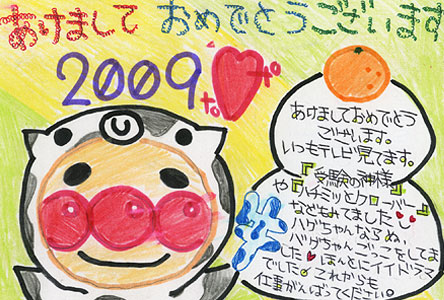 あけまして おめでとうございます
2009
あけましておめでとう
ございます。
いつもテレビ見てます。
『受験の神様』
や『ハチミツとクローバー』
などもみてました
ハゲちゃんならぬ、
バゲちゃんごっこをしてま
した ほんとにイイドラマ
でした。これからも
仕事がんばってください。